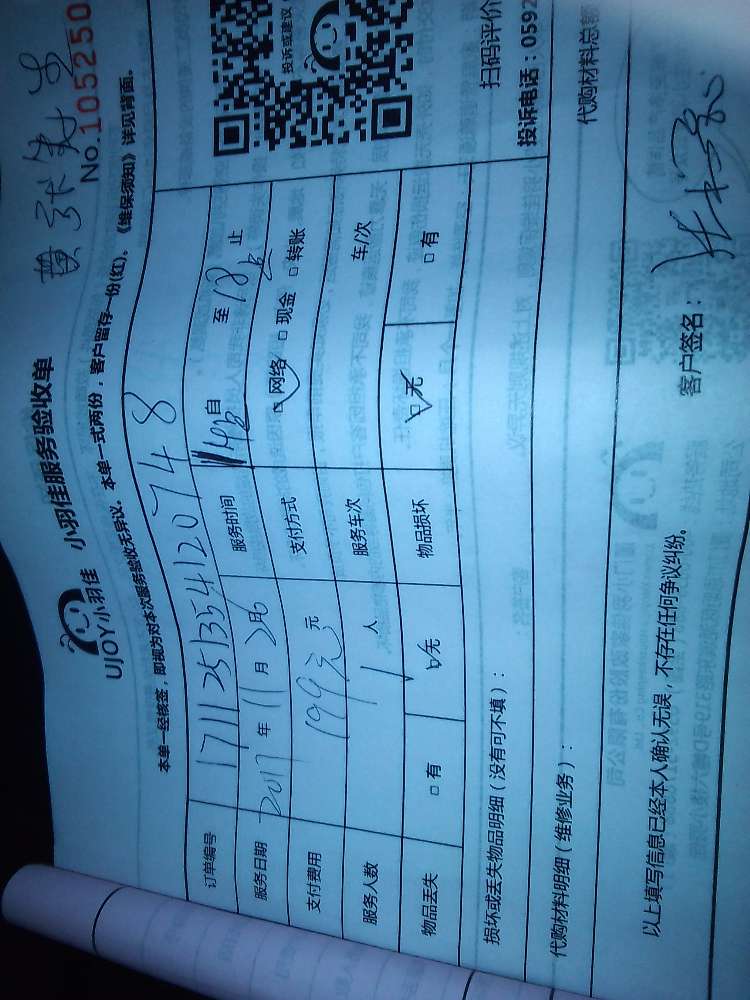 黄 张先生
UJOY小羽佳 小羽佳服务验收单
No.105250
本单一经核签，即视为对本次服务验收无异议。本单一式两份，客户留存一份(红)。《维保须知》详见背面。
订单编号 171125135412074 8
服务日期 2017 年 11 月 26 服务时间 14点 自 至 18点 止
支付费用 199元 元 支付方式 ☑网络 □现金 □转账
服务人数 1 人 服务车次 车/次
物品丢失 □有 ☑无 物品损坏 ☑无 □有
投诉或建议
扫码评价
投诉电话：0592
损坏或丢失物品明细（没有可不填）：
代购材料明细（维修业务）： 代购材料总额
以上填写信息已经本人确认无误，不存在任何争议纠纷。 客户签名：